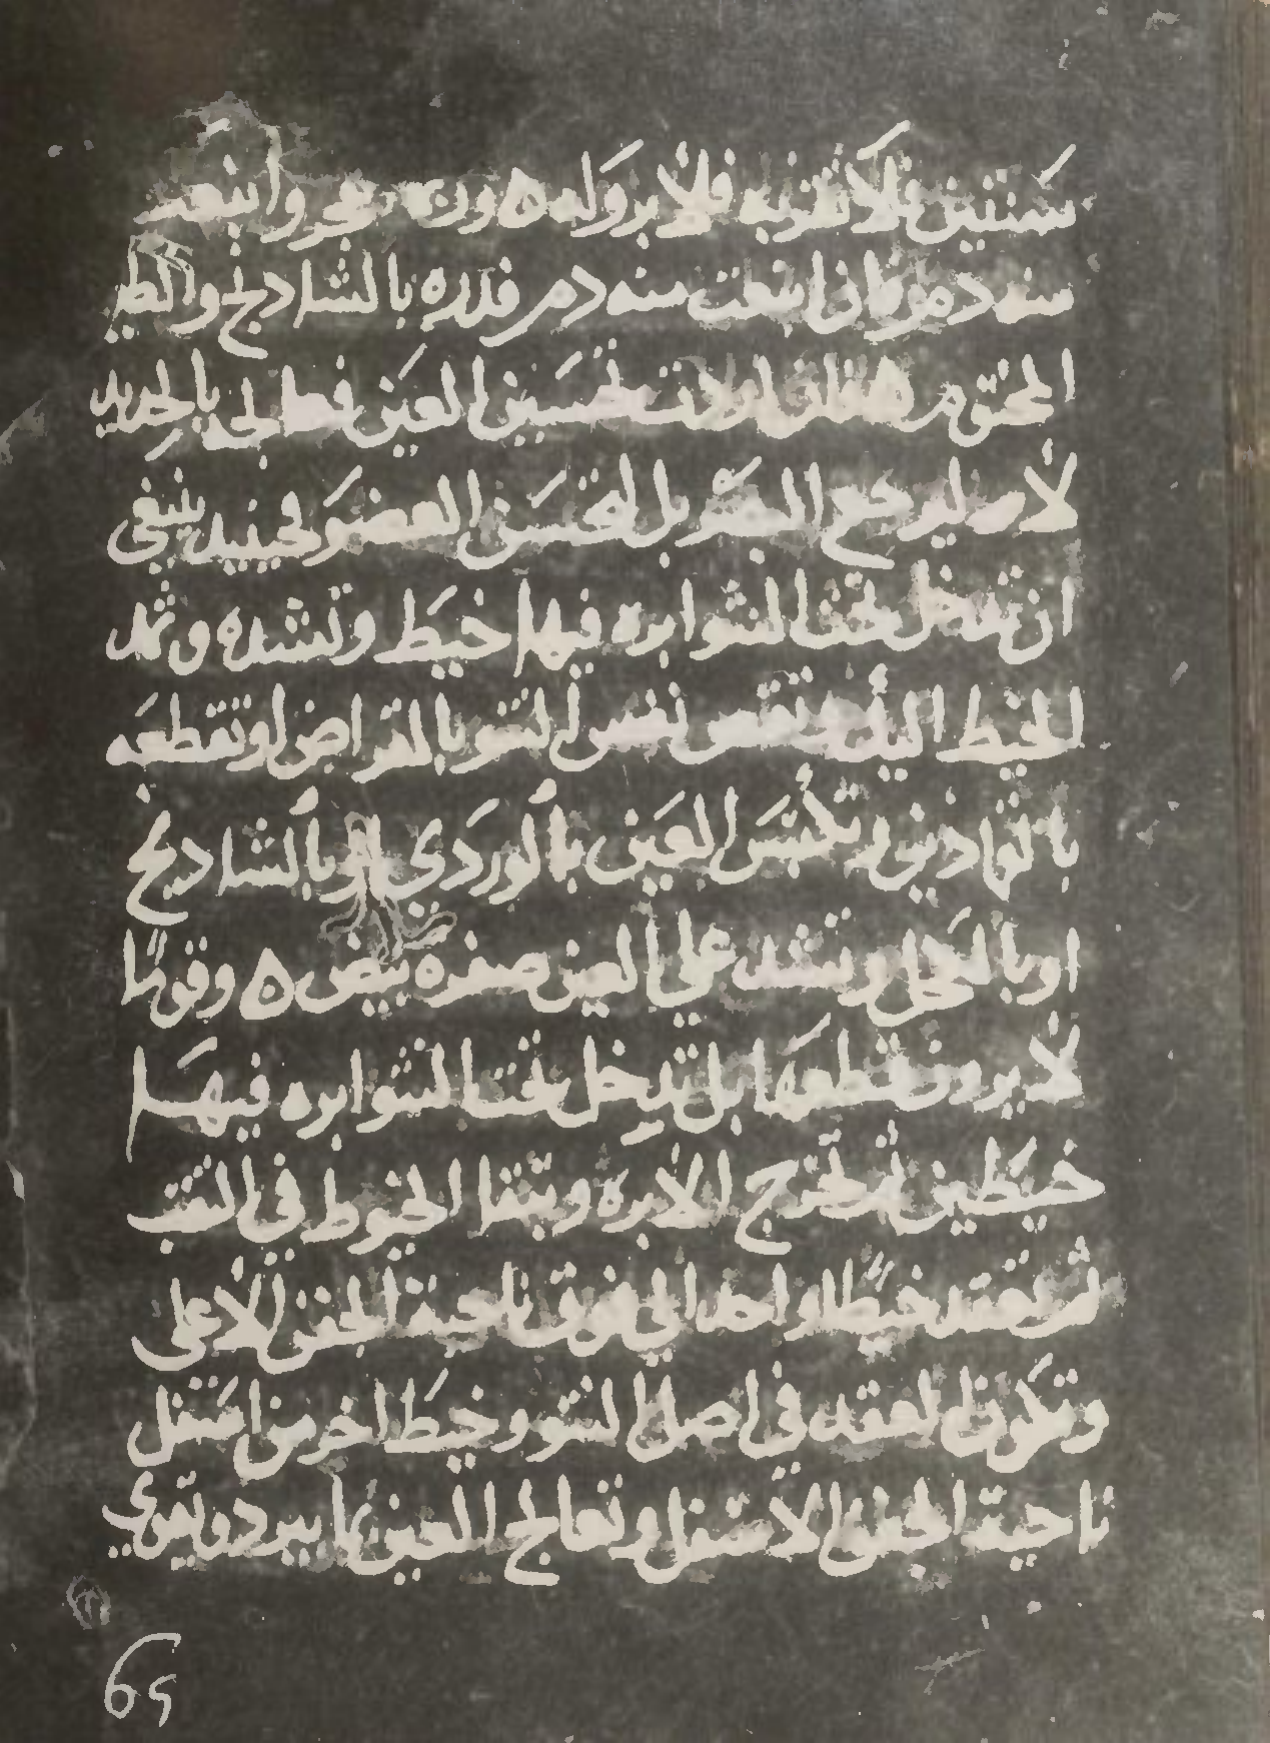 سنتين فلا تقربه فلا برو له ه وربما نحر وانبعث
منه دم فان انبعث منه دم فذره بالشادنج والطين
المختوم ه فان اردت تحسين العين فعالجه بالحديد
لا ليرجع البصر بل لتحسن العضو فحينيد ينبغي
ان تدخل تحت النتو ابره فيها خيط وتشده وتمد
الخيط اليك وتقص نفس النتو بالمقراض او تقطعه
بالقمادين وتكبس العين بالوردي او بالشاديج
او بالكحل وتشد على العين صفره بيض ه وقوما
لا يرون قطعها بل تدخل تحت النتو ابره فيها
خيطين ثم تخرج الابره وتبقا الخيوط في الثقب
ثم تعقد خيطا واحدا الى فوق ناحية الجفن الاعلى
وتكون العقده في اصل النتو وخيط اخر من اسفل
ناحية الجفن الاسفل وتعالج العين بما يبرد ويقوي
69